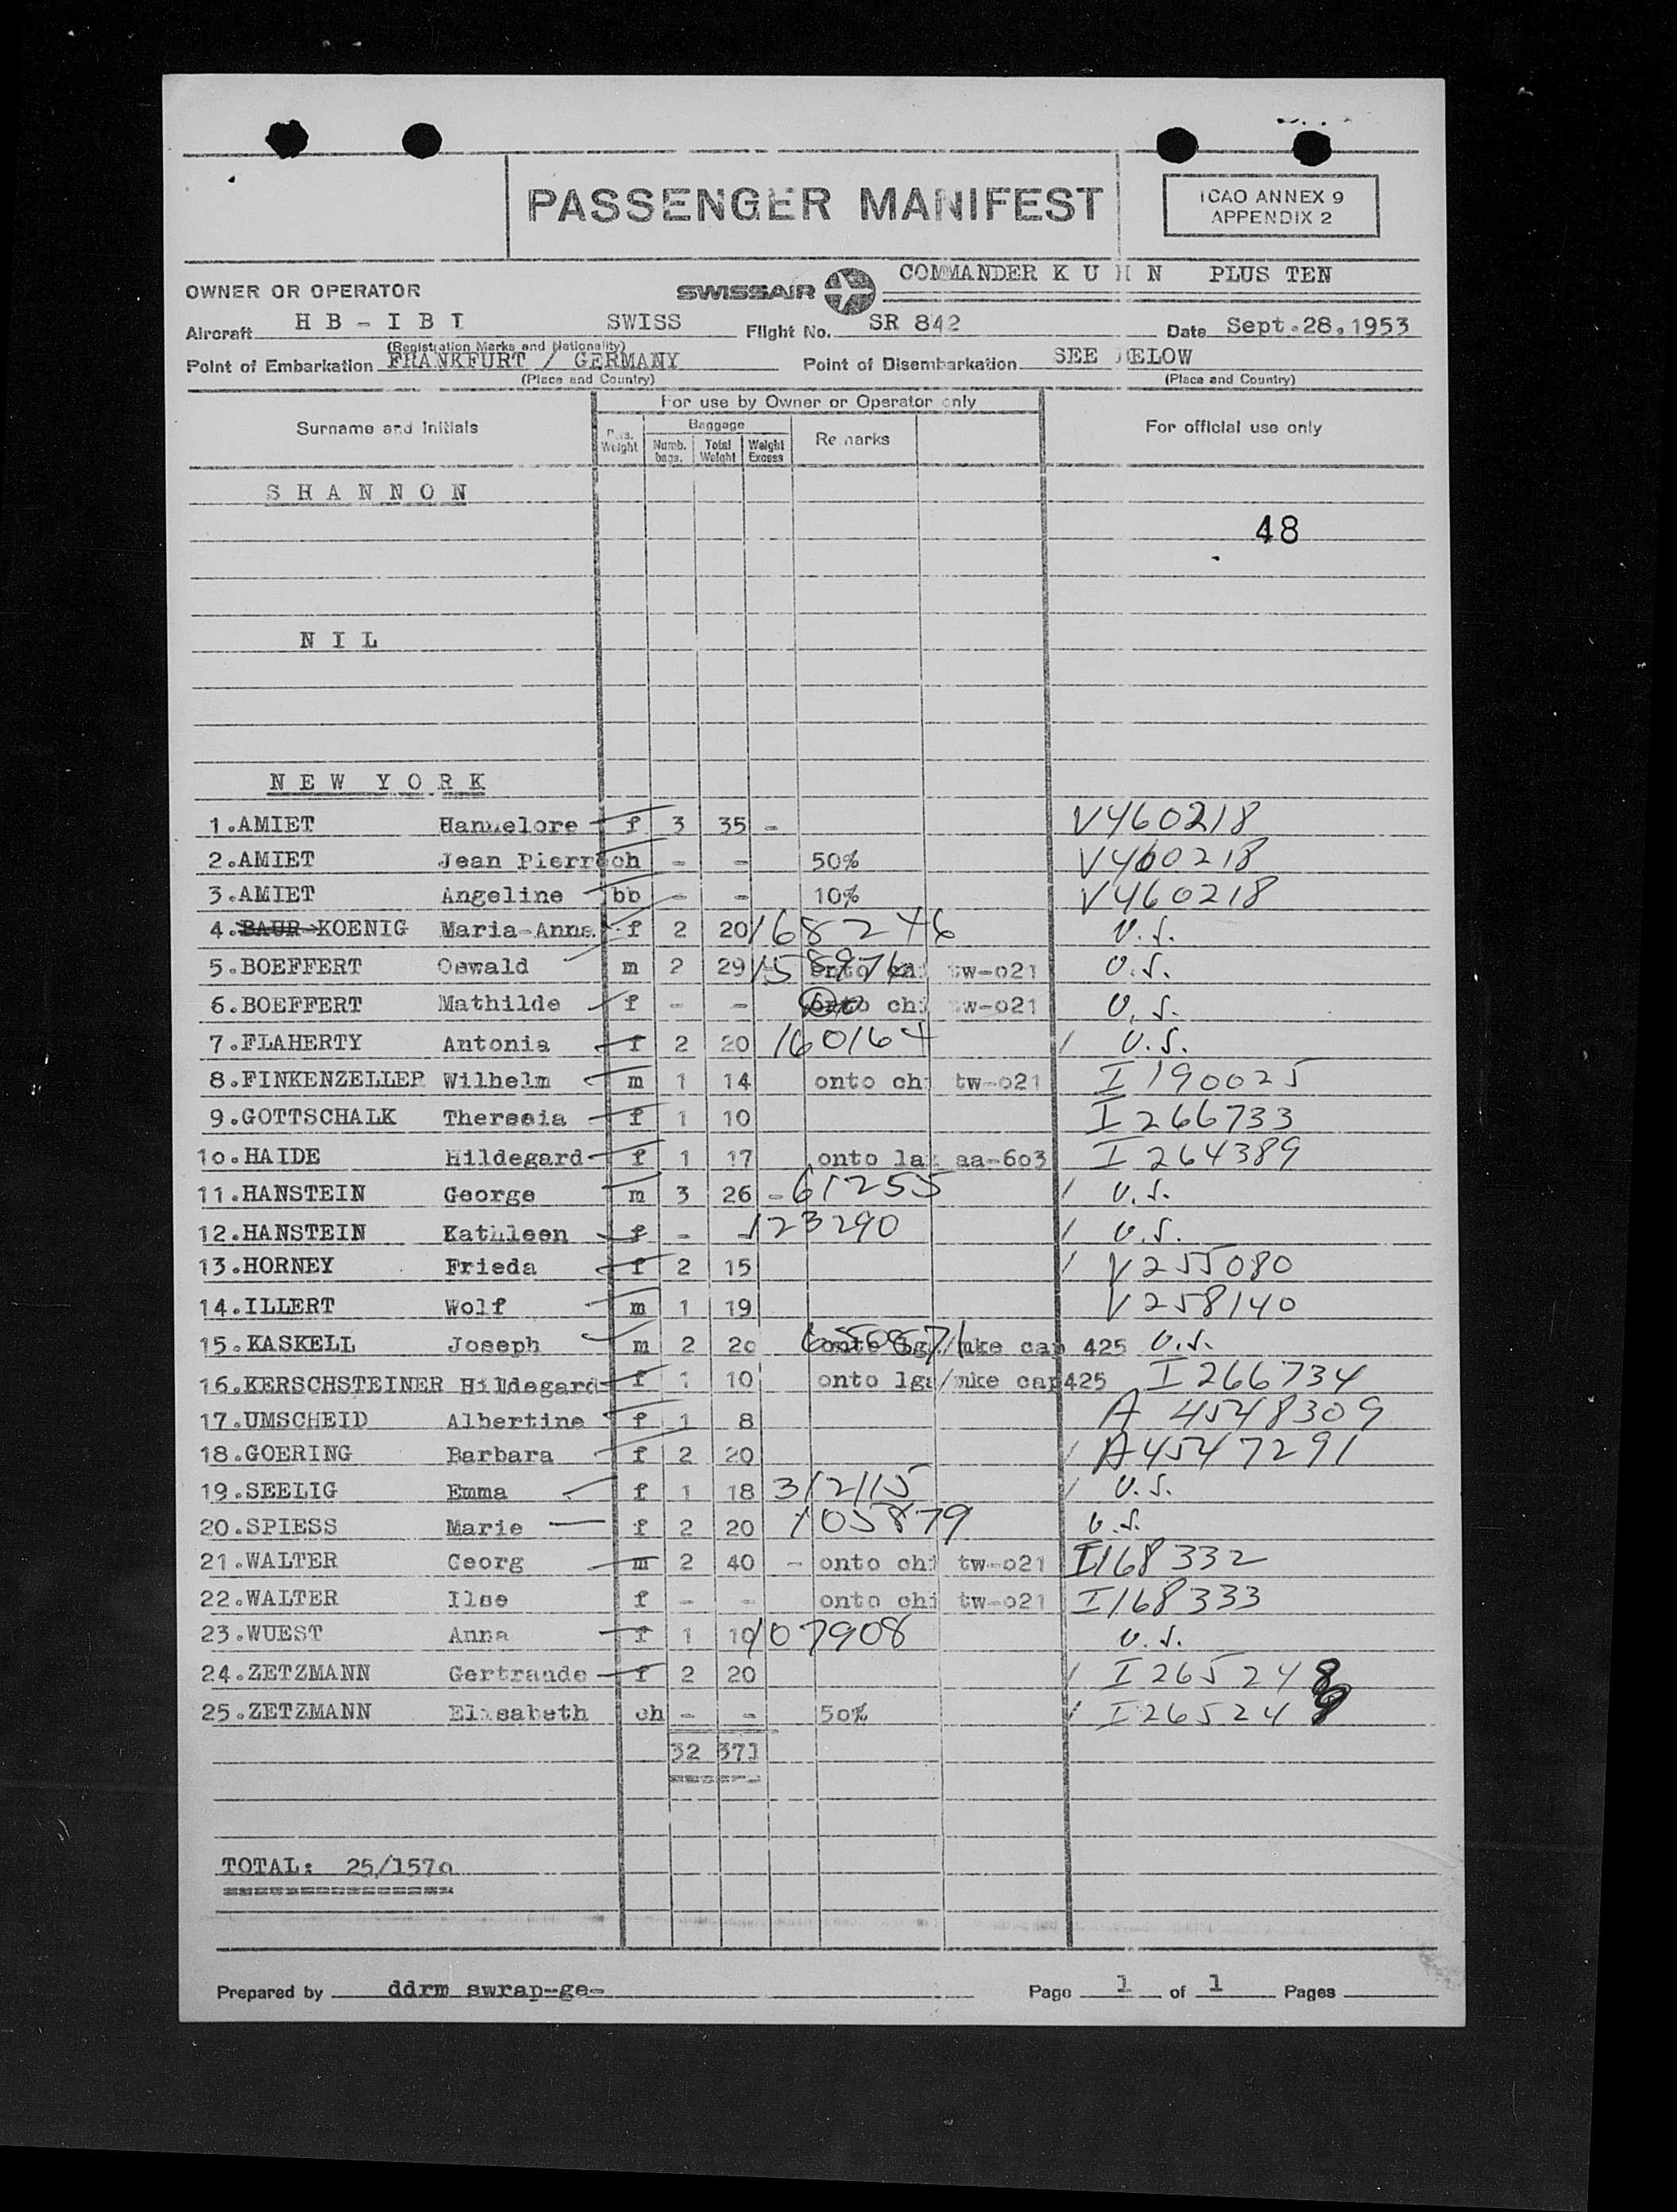 PASSENGER MANIFEST
ICAO ANNEX 9
APPENDIX 2
COMMANDER K U H N PLUS TEN
OWNER OR OPERATOR SWISSAIR
Aircraft H B - I B I SWISS Flight No. SR 842 Date Sept.28,1953
(Registration Marks and Nationality)
Point of Embarkation FRANKFURT / GERMANY Point of Disembarkation SEE BELOW
(Place and Country) (Place and Country)
For use by Owner or Operator only
Surname and Initials Pass. Weight Baggage Numb. bags. Total Weight Weight Excess Remarks For official use only
S H A N N O N
48
N I L
N E W Y O R K
1.AMIET Hannelore f 3 35 - V460218
2.AMIET Jean Pierre ch - - 50% V460218
3.AMIET Angeline bb - - 10% V460218
4.BAUR-KOENIG Maria-Anna f 2 20 168 2 46 U.S.
5.BOEFFERT Oswald m 2 29 onto chi tw-o21 U.S.
6.BOEFFERT Mathilde f - - onto chi tw-o21 U.S.
7.FLAHERTY Antonia f 2 20 160164 / U.S.
8.FINKENZELLER Wilhelm m 1 14 onto chi tw-o21 I 190025
9.GOTTSCHALK Theresia f 1 10 I 266733
1o.HAIDE Hildegard f 1 17 onto lax aa-6o3 I 264389
11.HANSTEIN George m 3 26 - 61255 / U.S.
12.HANSTEIN Kathleen f - - 123290 / U.S.
13.HORNEY Frieda f 2 15 / V255080
14.ILLERT Wolf m 1 19 V258140
15.KASKELL Joseph m 2 2o onto lga/mke cap 425 U.S.
16.KERSCHSTEINER Hildegard f 1 10 onto lga/mke cap425 I 266734
17.UMSCHEID Albertine f 1 8 A 4548309
18.GOERING Barbara f 2 20 / A4547291
19.SEELIG Emma f 1 18 312115 / U.S.
20.SPIESS Marie f 2 20 105879 U.S.
21.WALTER Georg m 2 40 - onto chi tw-o21 I168332
22.WALTER Ilse f - - onto chi tw-o21 I168333
23.WUEST Anna f 1 10 107908 U.S.
24.ZETZMANN Gertraude f 2 20 / I 265248
25.ZETZMANN Elisabeth ch - - 5o% / I 26524
32 371
TOTAL: 25/157o
Prepared by ddrm swrap-ge- Page 1 of 1 Pages